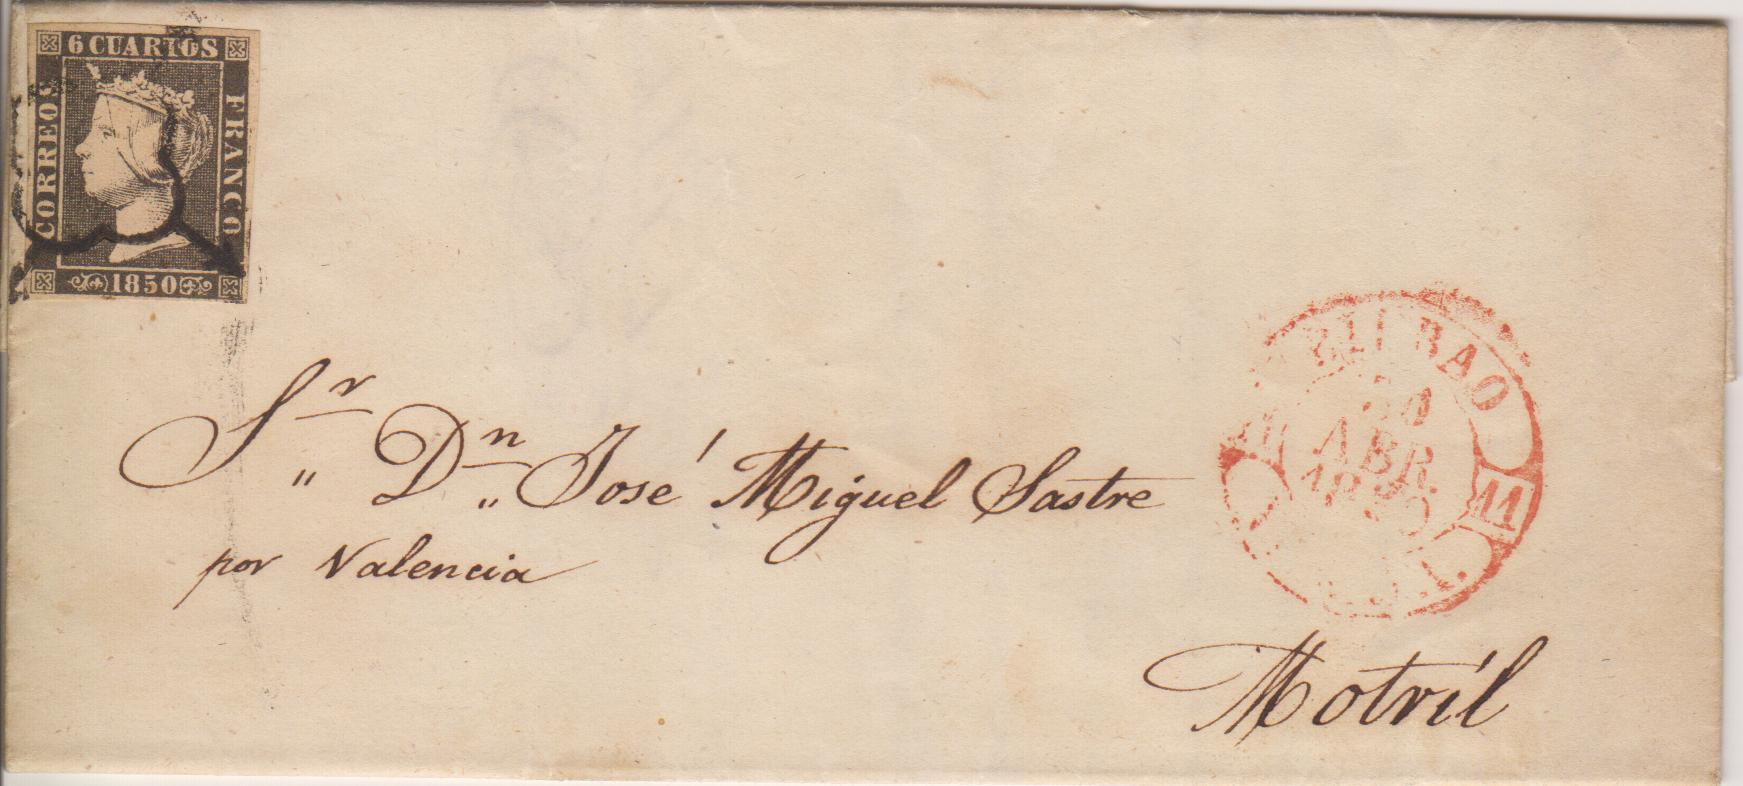 6 CUARTOS
CORREOS
FRANCO
1850
BILBAO
ABR
1850
11
Sr " Dn " José Miguel Sastre
por Valencia
Motríl